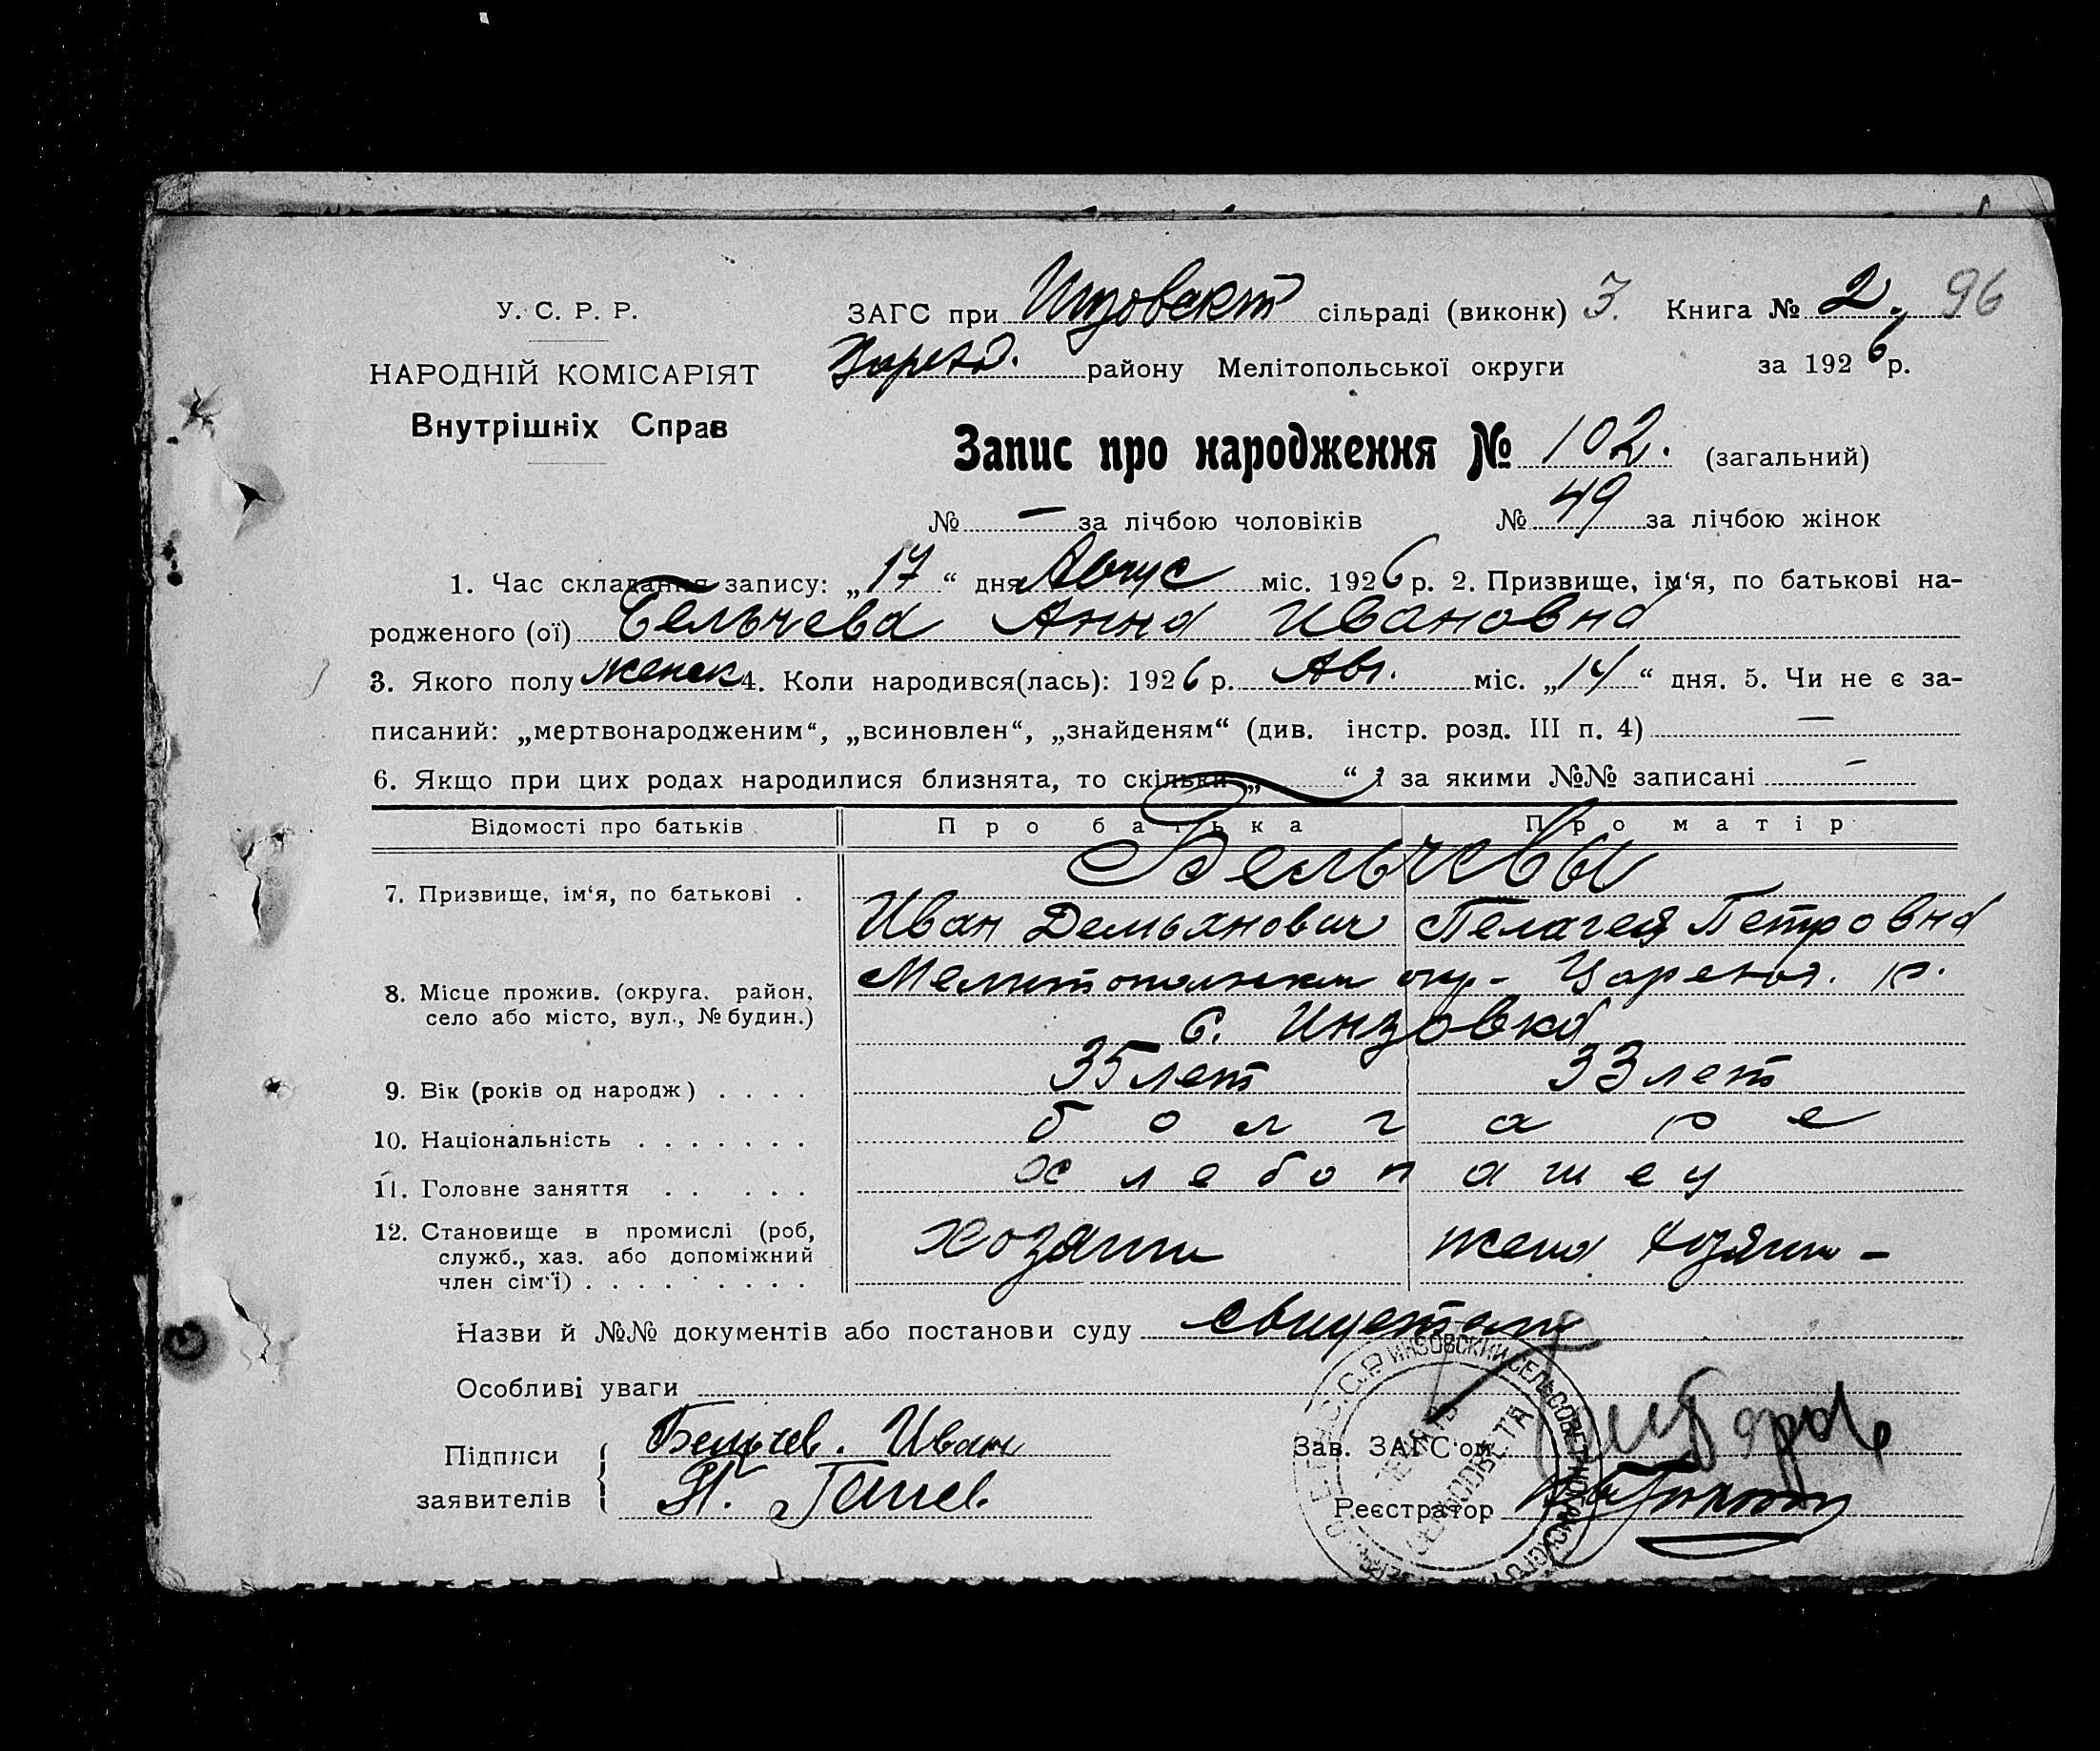 У. С. Р. Р.
НАРОДНІЙ КОМІСАРІЯТ
Внутрішніх Справ
ЗАГС при Инзовскт сільраді (виконк) 3. Книга № 2. 96
Царева. району Мелітопольської округи за 1926 р.
Запис про народження № 102. (загальний)
№ — за лічбою чоловіків № 49 за лічбою жінок
1. Час складання запису: „17“ дня Авгус міс. 1926 р. 2. Призвище, ім‘я, по батькові на-
родженого (ої) Бельчева Анна Ивановна
3. Якого полу женск 4. Коли народився(лась): 1926 р. Авг. міс. „14“ дня. 5. Чи не є за-
писаний: „мертвонародженим“, „всиновлен“, „знайденям“ (див. інстр. розд. III п. 4) —
6. Якщо при цих родах народилися близнята, то скільки „ “ і за якими №№ записані —
Відомості про батьків Про батька Про матір
7. Призвище, ім‘я, по батькові . Бельчевы
Иван Демьянович Пелагея Петровна
8. Місце прожив. (округа, район, село або місто, вул., № будин.) Мелитопольскии окр- Царевод. р.
с. Инзовка
9. Вік (років од народж) . . . . 35 лет 33 лет
10. Національність . . . . . . . болгаре
11. Головне заняття . . . . . хлебопашец
12. Становище в промислі (роб, служб., хаз. або допоміжний член сім‘ї) . . . . . . . . . хозяин жена хозяин-
Назви й №№ документів або постанови суду свидетели
Особливі уваги
Підписи заявителів Бельчев. Иван
Зав. ЗАГС‘ом
Реєстратор
ИНЗОВСКИЙ СЕЛЬСОВЕТ